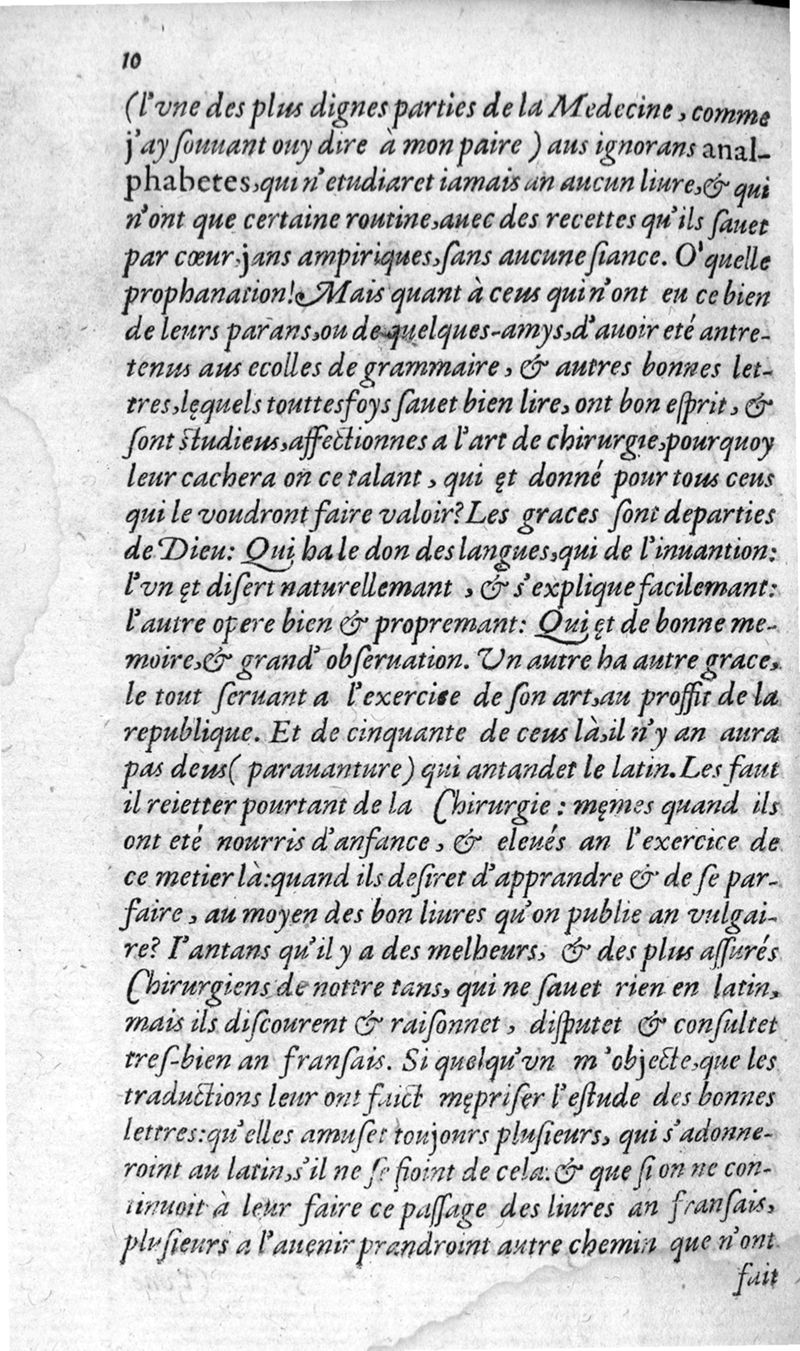 10
(l'vne des plus dignes parties de la Medecine, comme
j'ay ſouuant ouy dire à mon paire) aus ignorans anal-
phabetes, qui n'etudiaret iamais an aucun liure, & qui
n'ont que certaine routine, auec des recettes qu'ils ſauet
par cœur, jans ampiriques, ſans aucune ſiance. O' quelle
prophanation! Mais quant à ceus qui n'ont eu ce bien
de leurs parans, ou de quelques-amys, d'auoir eté antre-
tenus aus ecolles de grammaire, & autres bonnes let-
tres, lęquels touttesfoys ſauet bien lire, ont bon eſprit, &
ſont ſtudieus, affectionnes a l'art de chirurgie, pourquoy
leur cachera on ce talant, qui ęt donné pour tous ceus
qui le voudront faire valoir? Les graces ſont departies
de Dieu: Qui ha le don des langues, qui de l'inuantion:
l'vn ęt diſert naturellemant, & s'explique facilemant:
l'autre opere bien & propremant: Qui ęt de bonne me-
moire, & grand' obſeruation. Vn autre ha autre grace,
le tout ſeruant a l'exercise de ſon art, au proffit de la
republique. Et de cinquante de ceus là, il n'y an aura
pas deus (parauanture) qui antandet le latin. Les faut
il reietter pourtant de la Chirurgie: męmes quand ils
ont eté nourris d'anfance, & eleués an l'exercice de
ce metier là: quand ils deſiret d'apprandre & de ſe par-
faire, au moyen des bon liures qu'on publie an vulgai-
re? I'antans qu'il y a des melheurs, & des plus aſſurés
Chirurgiens de nottre tans, qui ne ſauet rien en latin,
mais ils diſcourent & raiſonnet, diſputet & conſultet
treſ-bien an franſais. Si quelqu'vn m'objecte, que les
traductions leur ont faict mępriſer l'eſtude des bonnes
lettres: qu'elles amuſet toujours pluſieurs, qui s'adonne-
roint au latin, s'il ne ſe fioint de cela: & que ſi on ne con-
tinuoit à leur faire ce paſſage des liures an franſais,
pluſieurs a l'auenir prandroint autre chemin que n'ont
fait